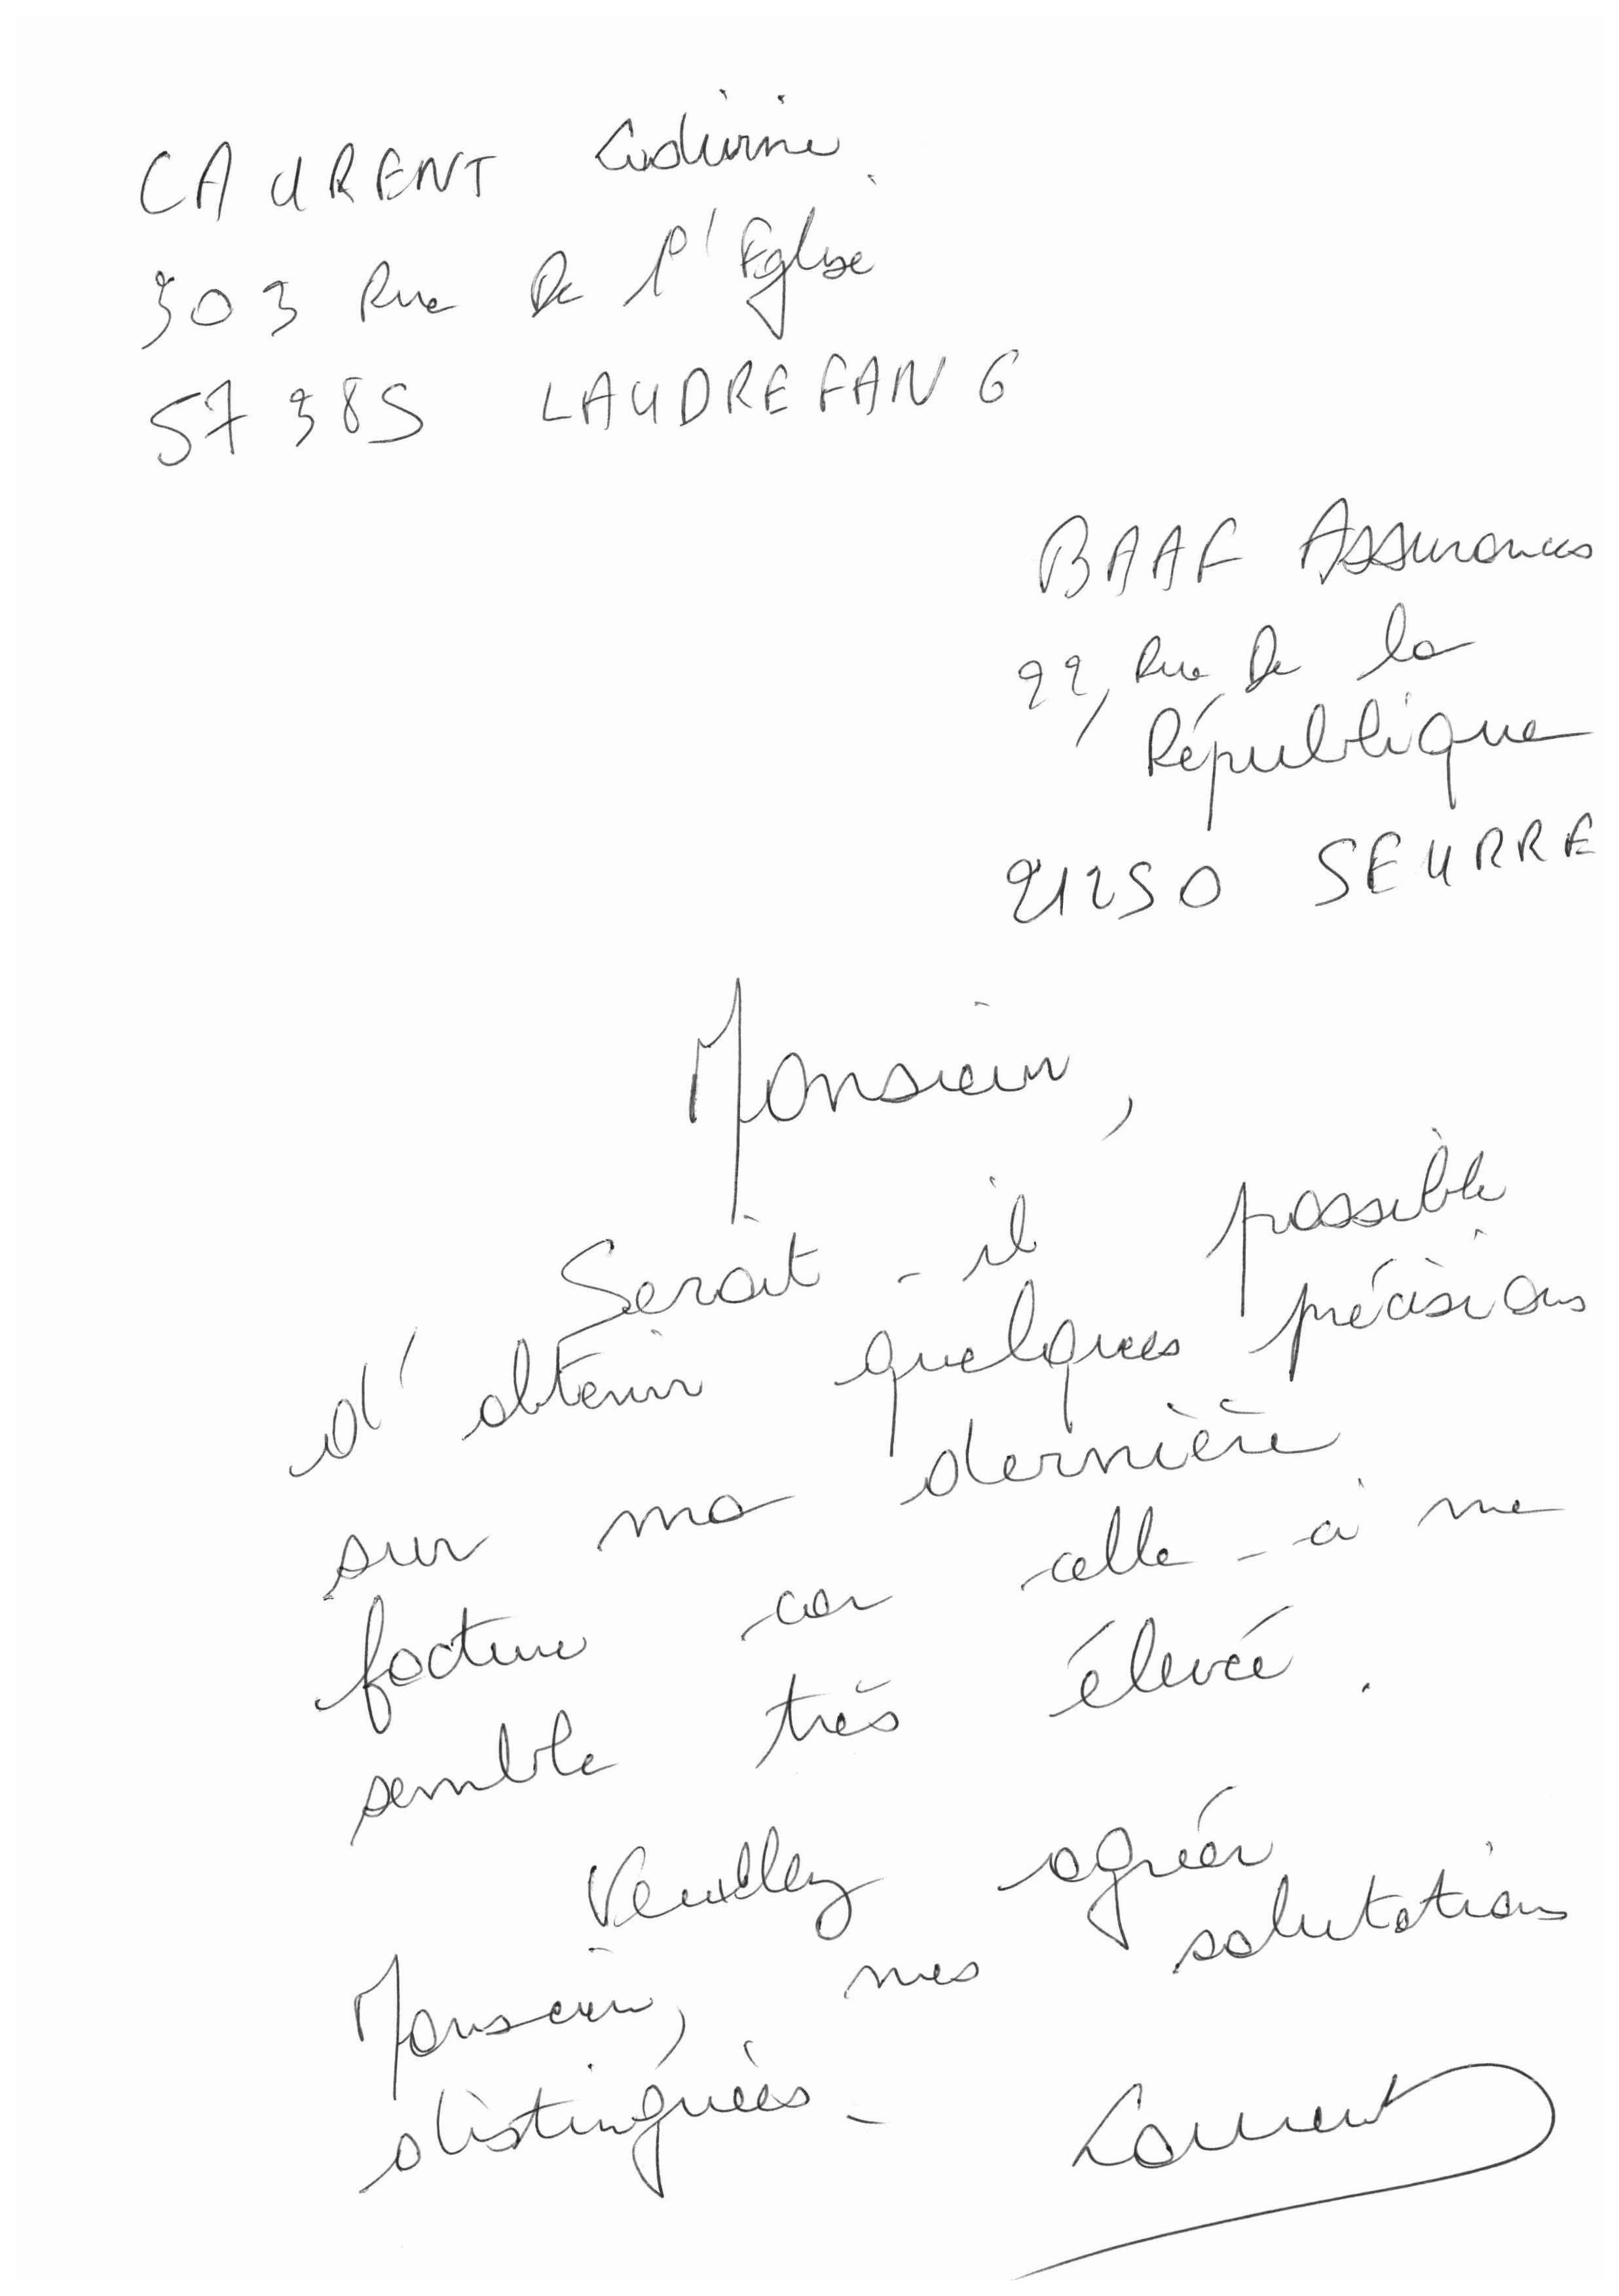 LAURENT Ludivine
303 Rue De l'Eglise
57385 LAUDREFANG
BAAF Assurances
22, Rue De la
République
21250 SEURRE
Monsieur,
Serait-il possible
d'obtenir quelques précisions
sur ma dernière
facture car celle-ci me
semble très élevée.
Veuillez agréer
Monsieur, mes salutations
distinguées.
Laurent